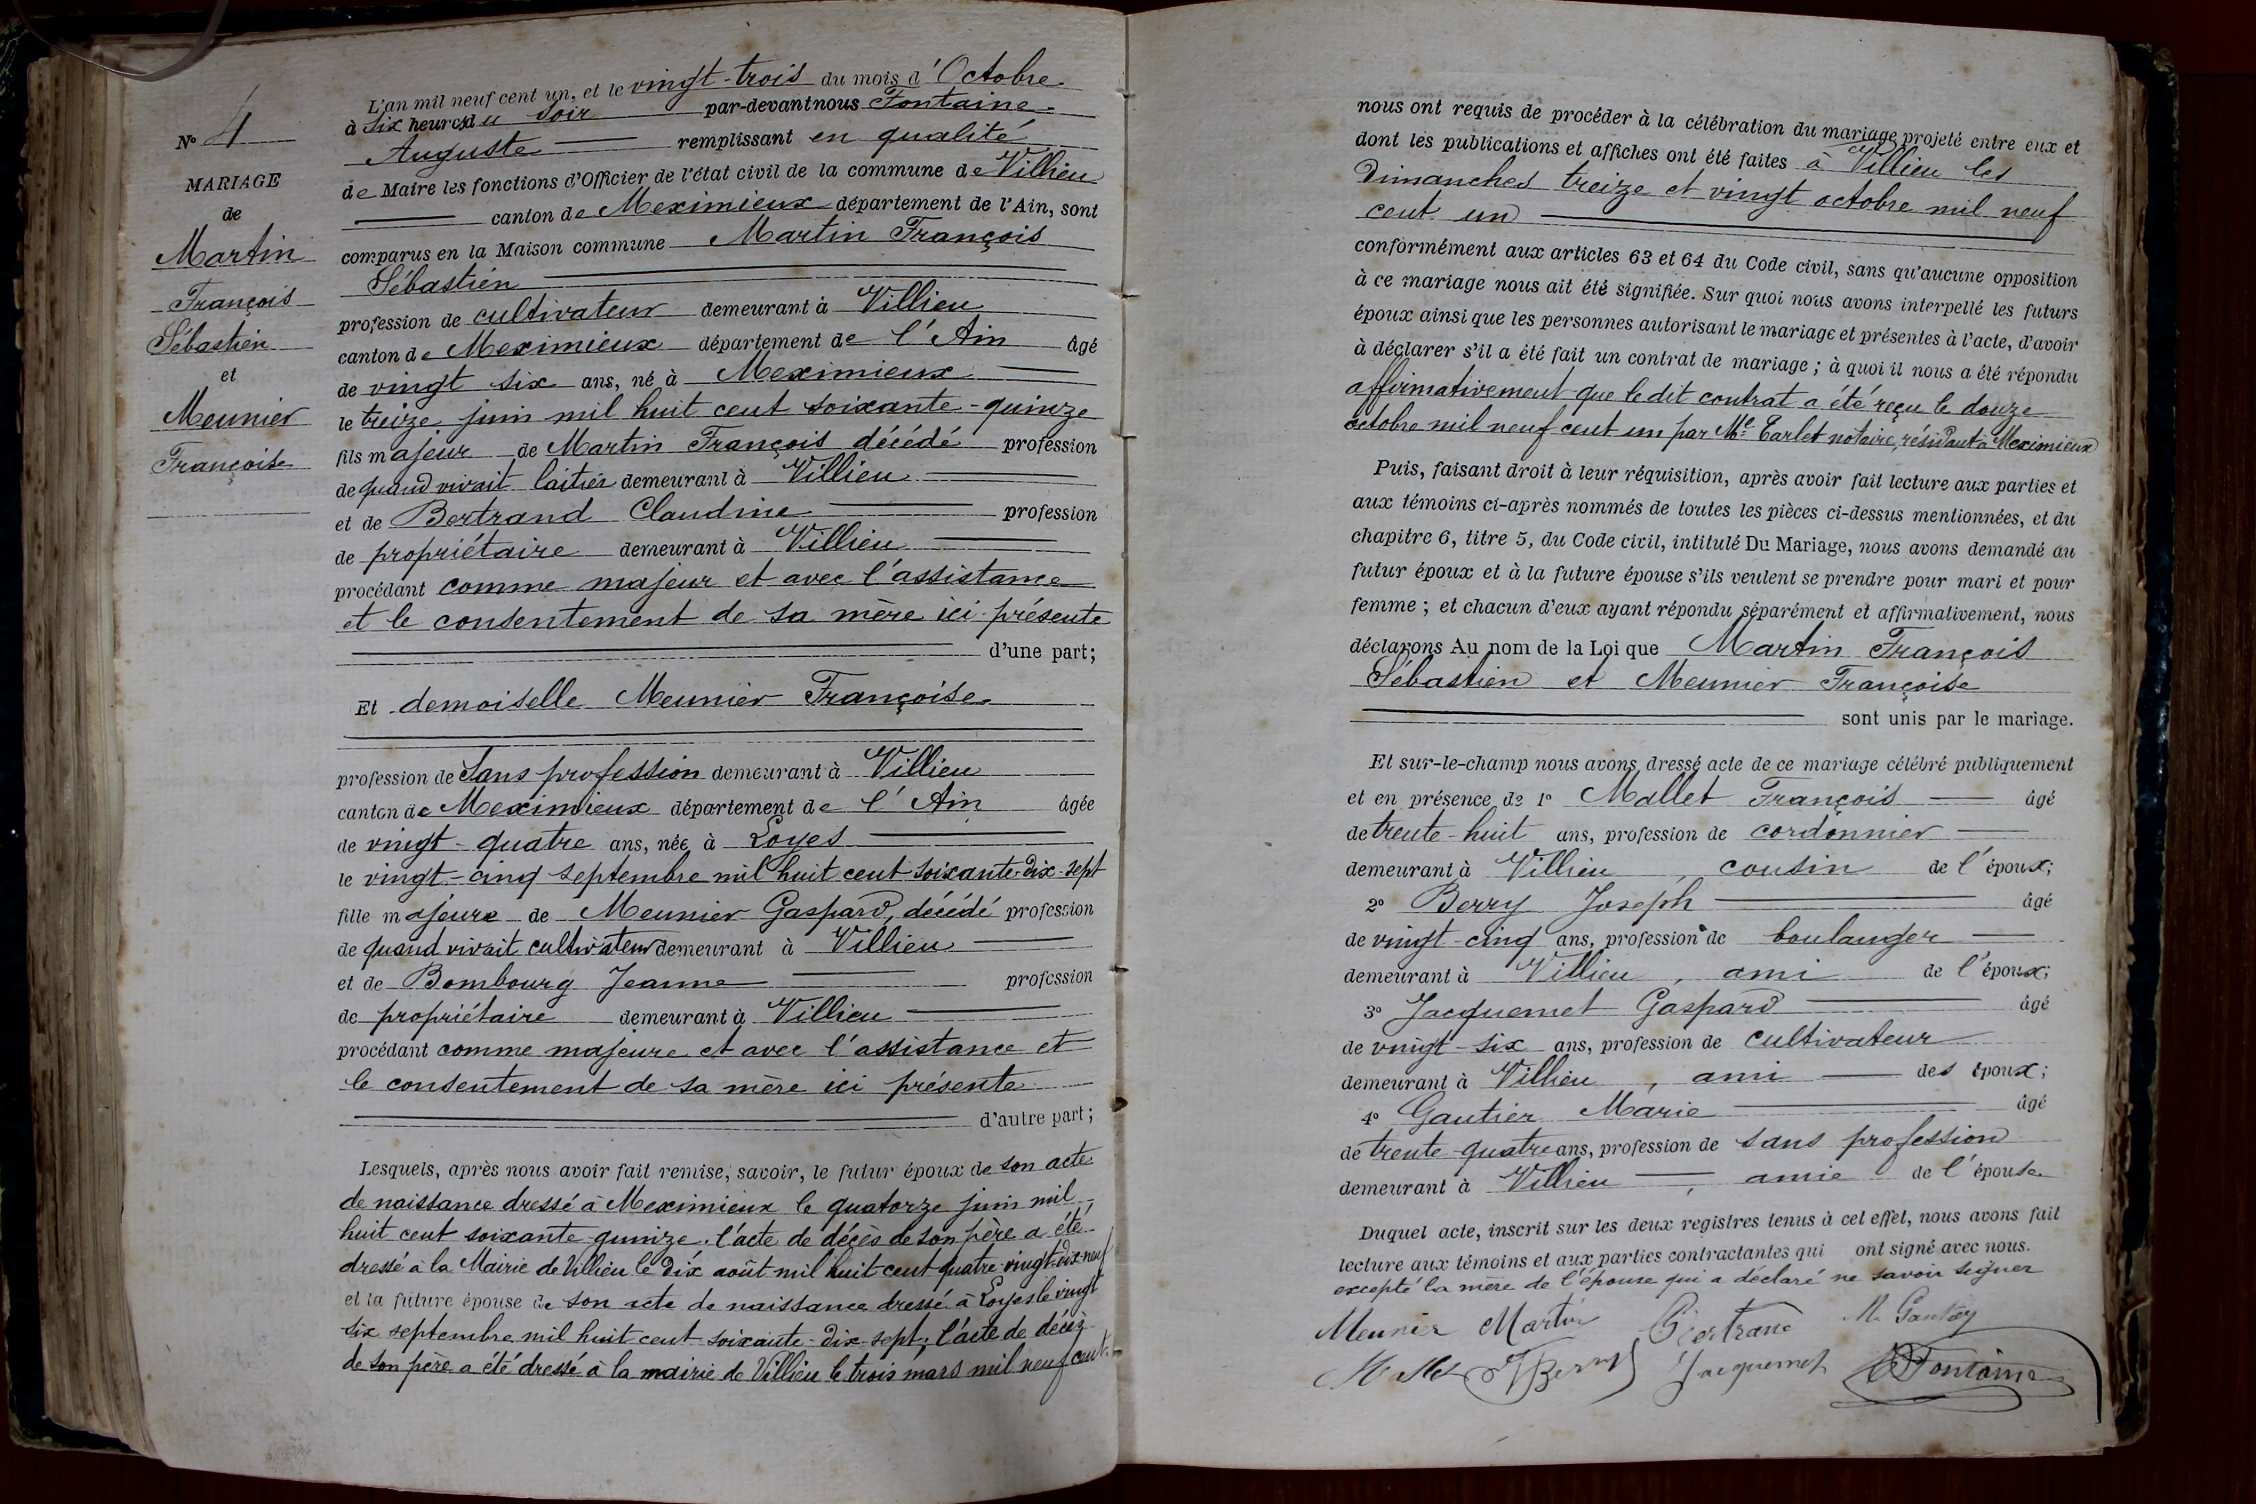 N° 4
MARIAGE
de
Martin
François
Sébastien
et
Meunier
Françoise
L'an mil neuf cent un, et le vingt-trois du mois d'Octobre
à six heures du soir par-devant nous Fontaine
Auguste remplissant en qualité
de Maire les fonctions d'Officier de l'état civil de la commune de Villieu
canton de Meximieux département de l'Ain, sont
comparus en la Maison commune Martin François
Sébastien
profession de cultivateur demeurant à Villieu
canton de Meximieux département de l'Ain âgé
de vingt six ans, né à Meximieux
le treize juin mil huit cent soixante-quinze
fils majeur de Martin François décédé profession
de quand vivait laitier demeurant à Villieu
et de Bertrand Claudine profession
de propriétaire demeurant à Villieu
procédant comme majeur et avec l'assistance
et le consentement de sa mère ici présente
d'une part;
Et demoiselle Meunier Françoise
profession de Sans profession demeurant à Villieu
canton de Meximieux département de l'Ain âgée
de vingt-quatre ans, née à Loyes
le vingt-cinq septembre mil huit cent soixante-dix-sept
fille majeure de Meunier Gaspard, décédé profession
de quand vivait cultivateur demeurant à Villieu
et de Bombourg Jeanne profession
de propriétaire demeurant à Villieu
procédant comme majeure et avec l'assistance et
le consentement de sa mère ici présente
d'autre part;
Lesquels, après nous avoir fait remise, savoir, le futur époux de son acte
de naissance dressé à Meximieux le quatorze juin mil
huit cent soixante quinze. l'acte de décès de son père a été
dressé à la Mairie de Villieu le dix août mil huit cent quatre-vingt-dix-neuf
et la future épouse de son acte de naissance dressé à Loyes le vingt
six septembre mil huit cent soixante-dix-sept; l'acte de décèz
de son père a été dressé à la mairie de Villieu le trois mars mil neuf cent.
nous ont requis de procéder à la célébration du mariage projeté entre eux et
dont les publications et affiches ont été faites à Villieu les
Dimanches treize et vingt octobre mil neuf
cent un
conformément aux articles 63 et 64 du Code civil, sans qu'aucune opposition
à ce mariage nous ait été signifiée. Sur quoi nous avons interpellé les futurs
époux ainsi que les personnes autorisant le mariage et présentes à l'acte, d'avoir
à déclarer s'il a été fait un contrat de mariage; à quoi il nous a été répondu
affirmativement que le dit contrat a été reçu le douze
octobre mil neuf cent un par Me Tarlet notaire, résidant à Meximieux
Puis, faisant droit à leur réquisition, après avoir fait lecture aux parties et
aux témoins ci-après nommés de toutes les pièces ci-dessus mentionnées, et du
chapitre 6, titre 5, du Code civil, intitulé Du Mariage, nous avons demandé au
futur époux et à la future épouse s'ils veulent se prendre pour mari et pour
femme; et chacun d'eux ayant répondu séparément et affirmativement, nous
déclarons Au nom de la Loi que Martin François
Sébastien et Meunier Françoise
sont unis par le mariage.
Et sur-le-champ nous avons dressé acte de ce mariage célébré publiquement
et en présence de 1° Mallet François âgé
de trente-huit ans, profession de cordonnier
demeurant à Villieu, cousin de l'époux;
2° Berry Joseph âgé
de vingt-cinq ans, profession de boulanger
demeurant à Villieu, ami de l'époux;
3° Jacquemet Gaspard âgé
de vingt-six ans, profession de cultivateur
demeurant à Villieu, ami des époux;
4° Gautier Marie âgé
de trente-quatre ans, profession de sans profession
demeurant à Villieu, amie de l'épouse
Duquel acte, inscrit sur les deux registres tenus à cet effet, nous avons fait
lecture aux témoins et aux parties contractantes qui ont signé avec nous.
excepté la mère de l'épouse qui a déclaré ne savoir signer
Meunier Martin Bertrand M. Gautier
Mallet J Berry Jacquemet Fontaine